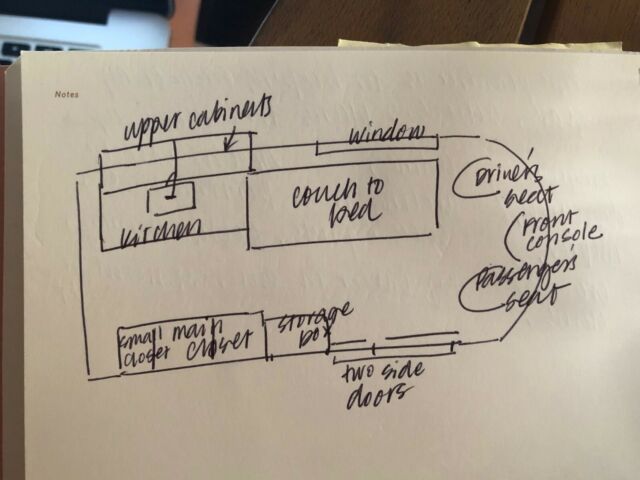 Notes
upper cabinets
window
Driver's
seat
couch to
bed
kitchen
Front
console
Passenger's
seat
storage
box
small
closet
main
closet
two side
doors